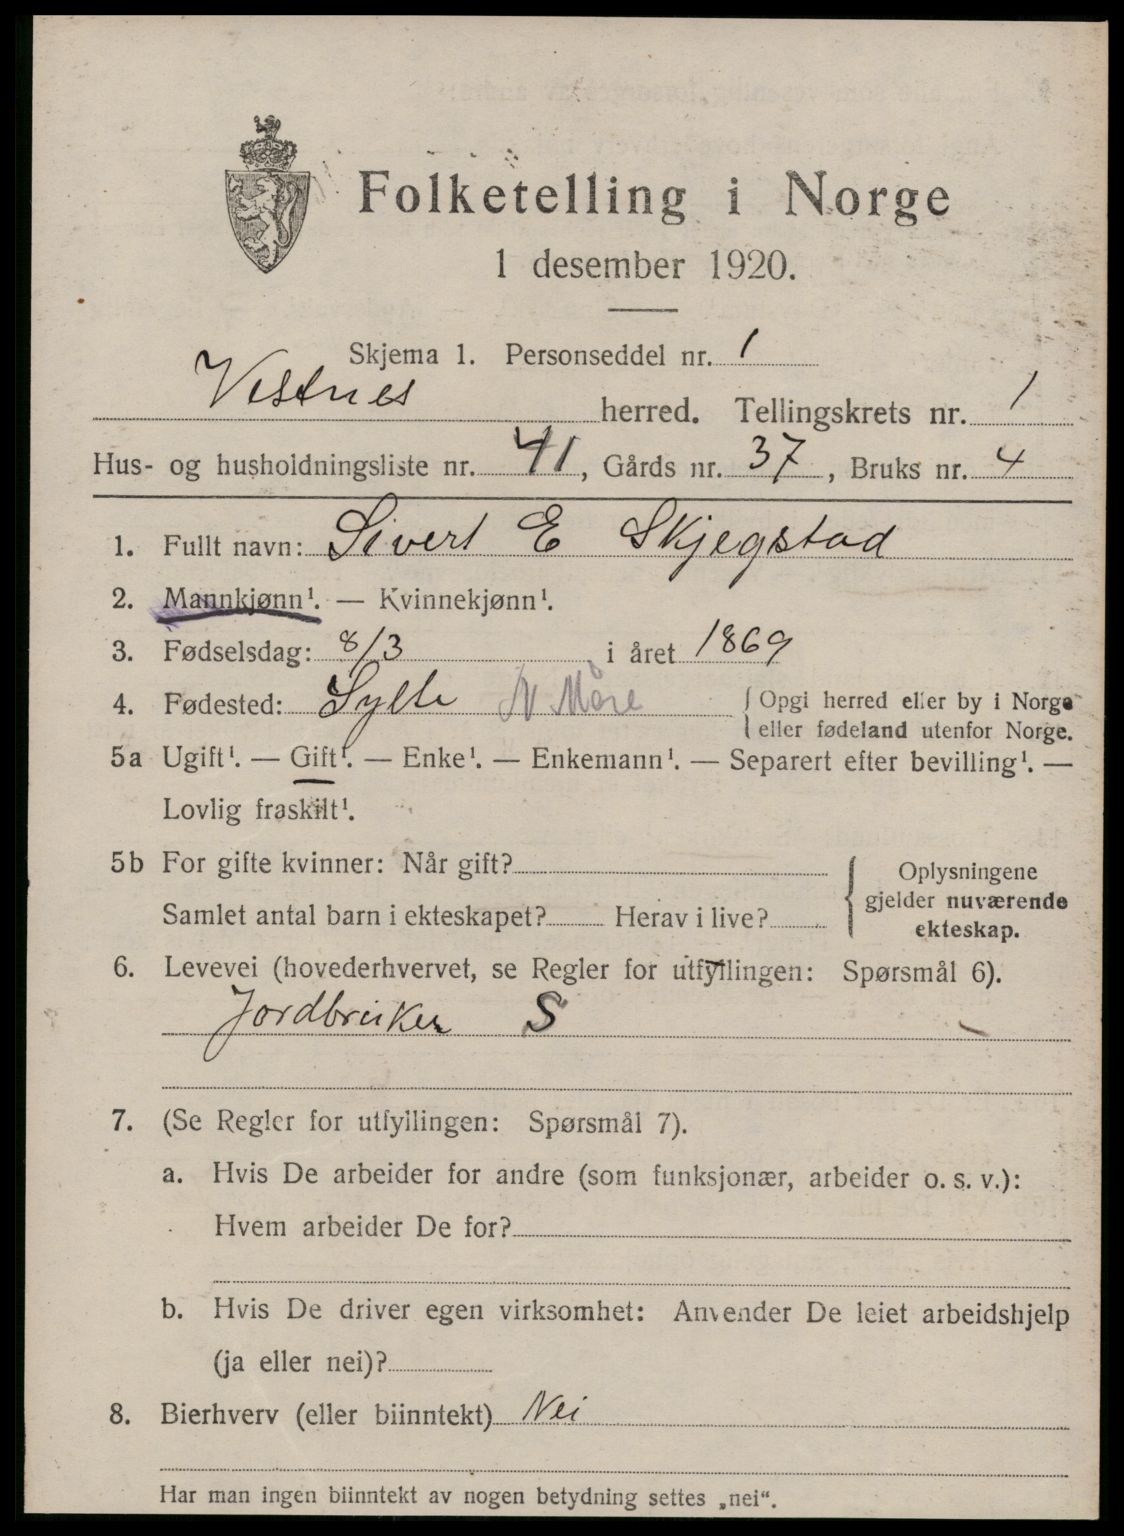 Folketelling i Norge
1 desember 1920.
Skjema 1. Personseddel nr. 1
Vestnes herred. Tellingskrets nr. 1
Hus- og husholdningsliste nr. 41, Gårds nr. 37, Bruks nr. 4
1. Fullt navn: Sivert E Skjegstad
2. Mannkjønn¹. — Kvinnekjønn¹.
3. Fødselsdag: 8/3 i året 1869
4. Fødested: Sylte N Møre { Opgi herred eller by i Norge
eller fødeland utenfor Norge.
5a Ugift¹. — Gift¹. — Enke¹. — Enkemann¹. — Separert efter bevilling¹. —
Lovlig fraskilt¹.
5b For gifte kvinner: Når gift?
Samlet antal barn i ekteskapet? Herav i live?
{ Oplysningene
gjelder nuværende
ekteskap.
6. Levevei (hovederhvervet, se Regler for utfyllingen: Spørsmål 6).
Jordbruker S
7. (Se Regler for utfyllingen: Spørsmål 7).
a. Hvis De arbeider for andre (som funksjonær, arbeider o. s. v.):
Hvem arbeider De for?
b. Hvis De driver egen virksomhet: Anvender De leiet arbeidshjelp
(ja eller nei)?
8. Bierhverv (eller biinntekt) Nei
Har man ingen biinntekt av nogen betydning settes „nei“.